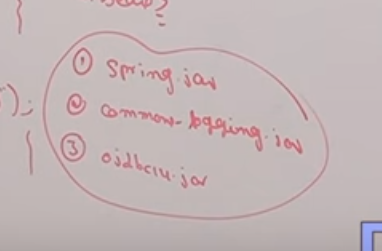 ① Spring.jar
② common-logging.jar
③ ojdbc14.jar